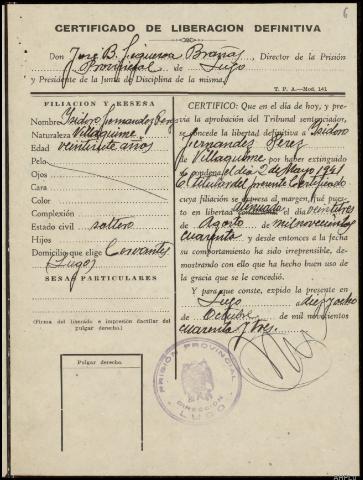 6
CERTIFICADO DE LIBERACION DEFINITIVA
Don José B. Figueroa Brañas, Director de la Prisión
Provincial de Lugo
y Presidente de la Junta de Disciplina de la misma.
T. P. A.-Mod. 141
FILIACION Y RESEÑA
Nombre Isidoro Fernandez Perez
Naturaleza Villaquime
Edad veintisiete años
Pelo
Ojos
Cara
Color
Complexión
Estado civil soltero
Hijos
Domicilio que elige Cervantes
(Lugo)
SEÑAS PARTICULARES
(Firma del liberado e impresión dactilar del
pulgar derecho.)
Pulgar derecho.
CERTIFICO: Que en el día de hoy, y pre-
via la aprobación del Tribunal sentenciador,
se concede la libertad definitiva a Isidoro
Fernandez Pérez
de Villaquime por haber extinguido
su condena el dia 2 de Mayo 1941
El titular del presente Certificado
cuya filiación se expresa al margen, fué pues-
to en libertad atenuada el día veintitres
de Agosto de mil novecientos
cuarenta y desde entonces a la fecha
su comportamiento ha sido irreprensible, de-
mostrando con ello que ha hecho buen uso de la
gracia que se le concedió.
Y para que conste, expido la presente en
Lugo a diez y ocho
de Octubre de mil novecientos
cuarenta y tres.
PRISION PROVINCIAL
DIRECCION
LUGO